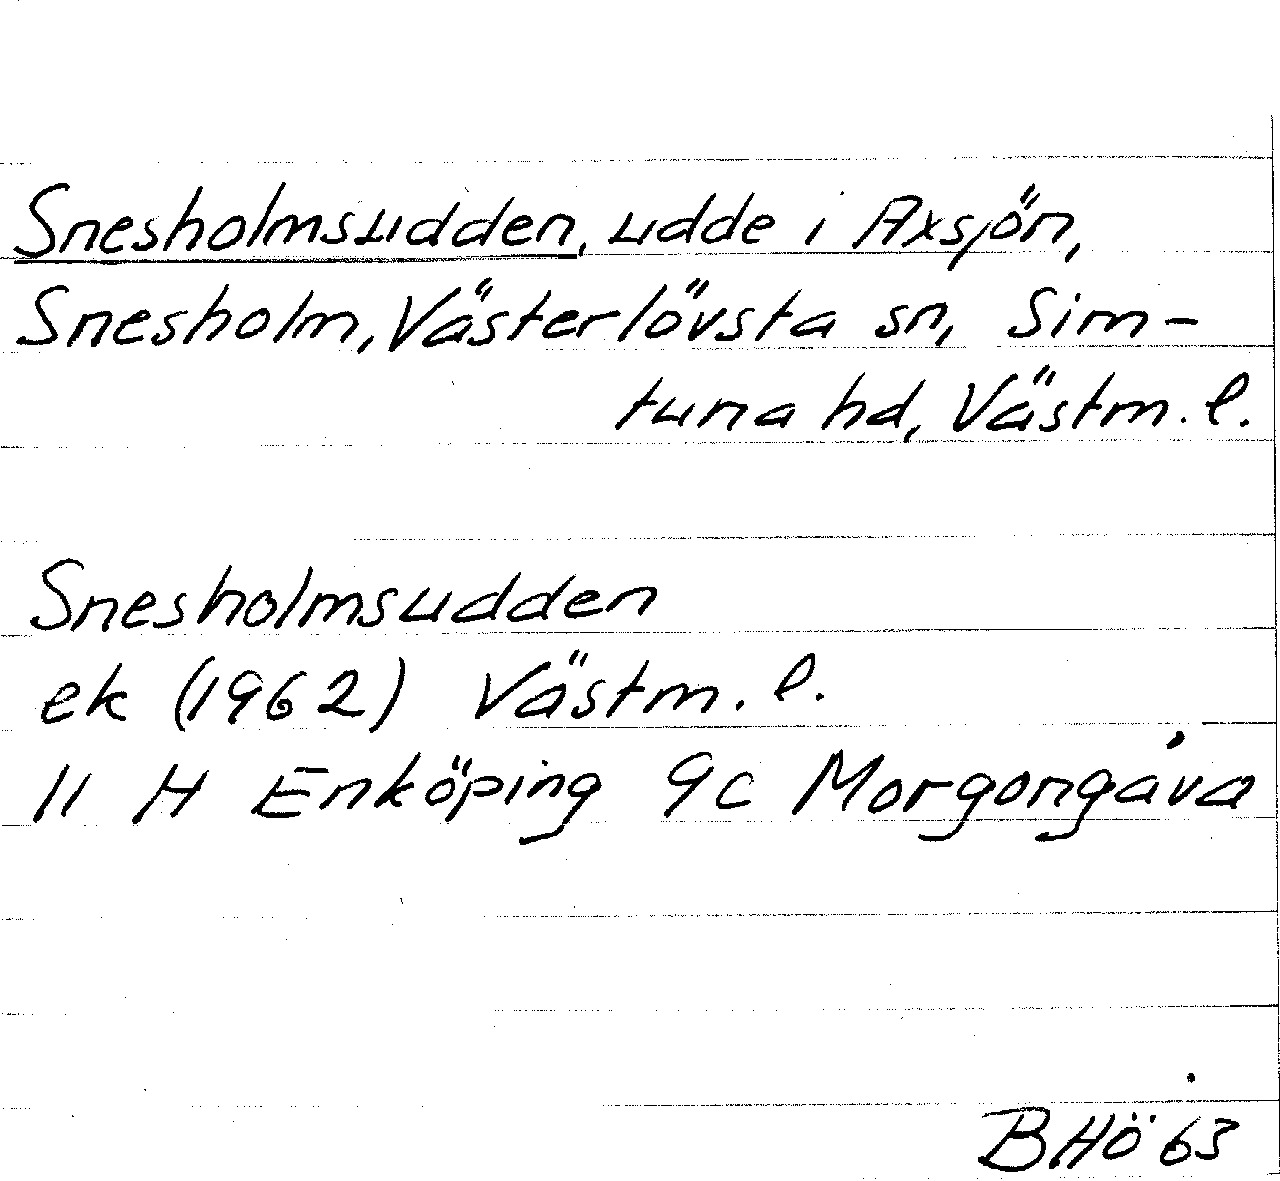 Snesholmsudden, udde i Axsjön,
Snesholm, Västerlövsta sn, Sim-
tuna hd, Västm. l.
Snesholmsudden
ek (1962) Västm. l.
11 H Enköping 9c Morgongåva
BHÖ 63